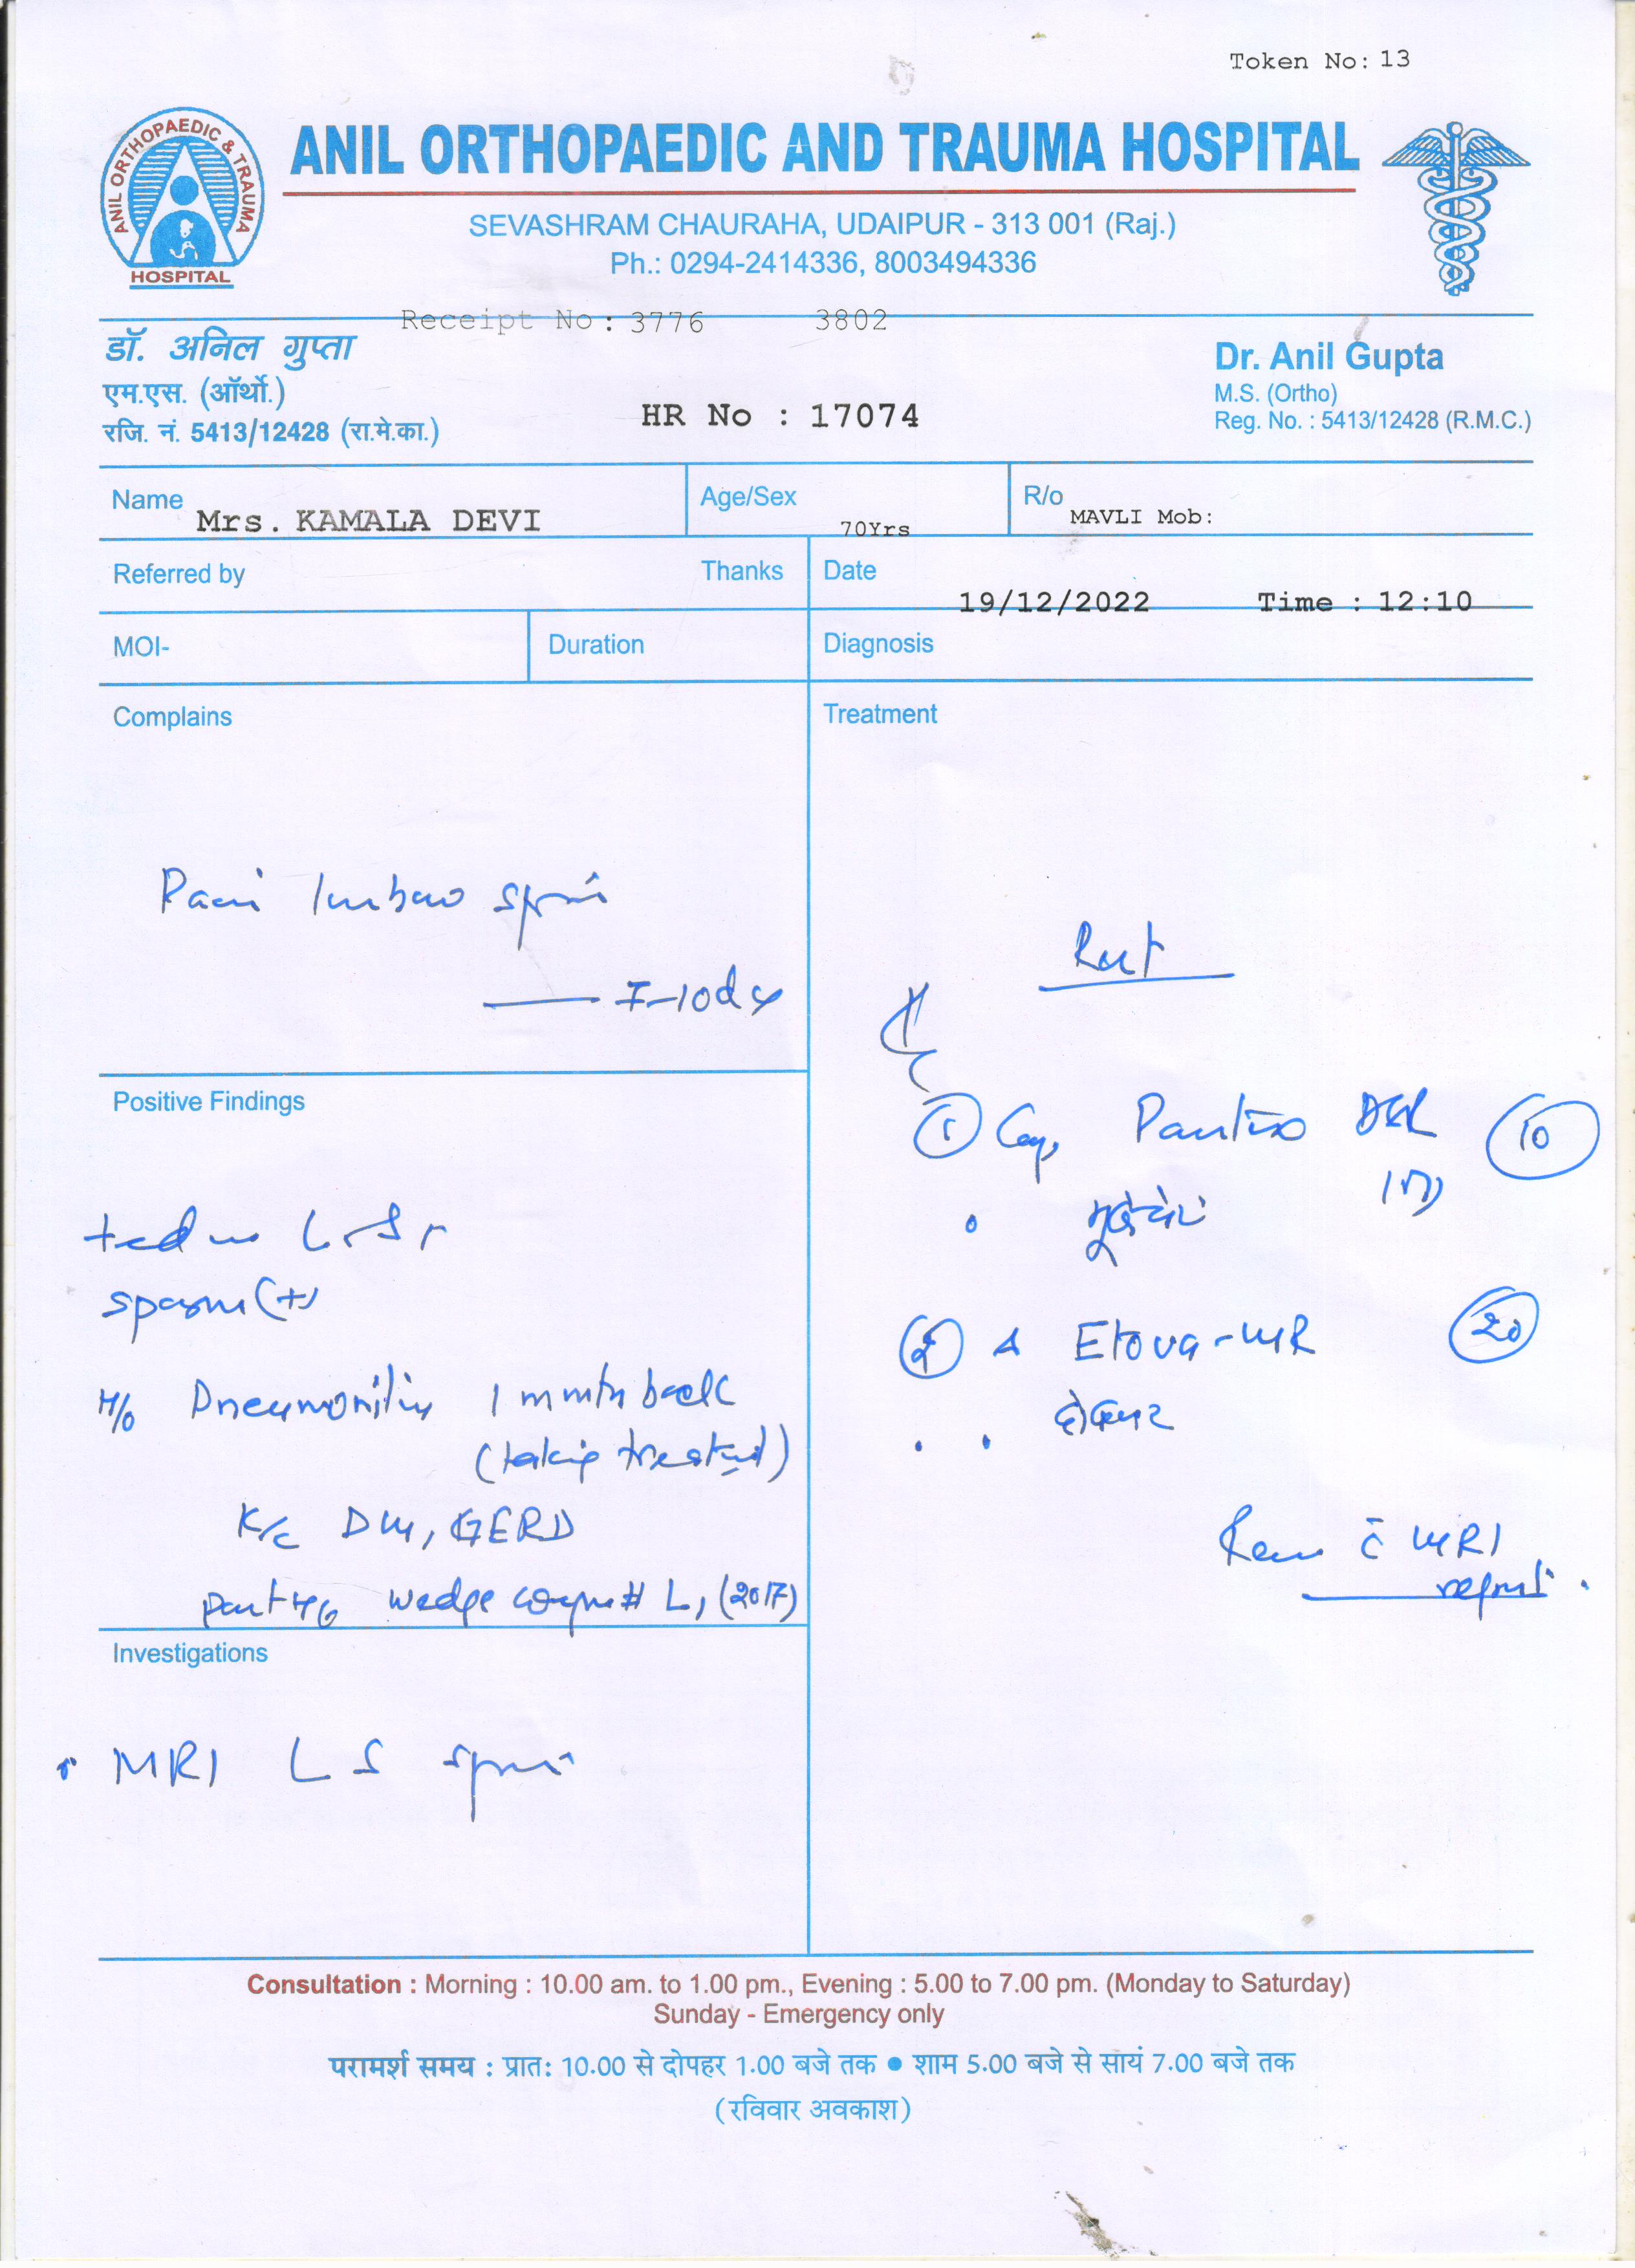 Token No: 13
ANIL ORTHOPAEDIC & TRAUMA
HOSPITAL
ANIL ORTHOPAEDIC AND TRAUMA HOSPITAL
SEVASHRAM CHAURAHA, UDAIPUR - 313 001 (Raj.)
Ph.: 0294-2414336, 8003494336
Receipt No : 3776 3802
डॉ. अनिल गुप्ता
एम.एस. (ऑर्थो.)
रजि. नं. 5413/12428 (रा.मे.का.)
HR No : 17074
Dr. Anil Gupta
M.S. (Ortho)
Reg. No. : 5413/12428 (R.M.C.)
Name Mrs. KAMALA DEVI Age/Sex 70Yrs R/o MAVLI Mob:
Referred by Thanks Date 19/12/2022 Time : 12:10
MOI- Duration Diagnosis
Complains
Pain lumbar spine
10d
Positive Findings
L.S.
spasm (+)
H/o Pneumonitis 1 month back
(taking treatment)
K/c DM, GERD
Past H/o wedge # L1 (2017)
Investigations
MRI LS spine
Treatment
Rest
① Cap. DSR ⑩
② Etova-MR ⑳
दो बार
c̄ MRI
report.
Consultation : Morning : 10.00 am. to 1.00 pm., Evening : 5.00 to 7.00 pm. (Monday to Saturday)
Sunday - Emergency only
परामर्श समय : प्रातः 10.00 से दोपहर 1.00 बजे तक ● शाम 5.00 बजे से सायं 7.00 बजे तक
(रविवार अवकाश)